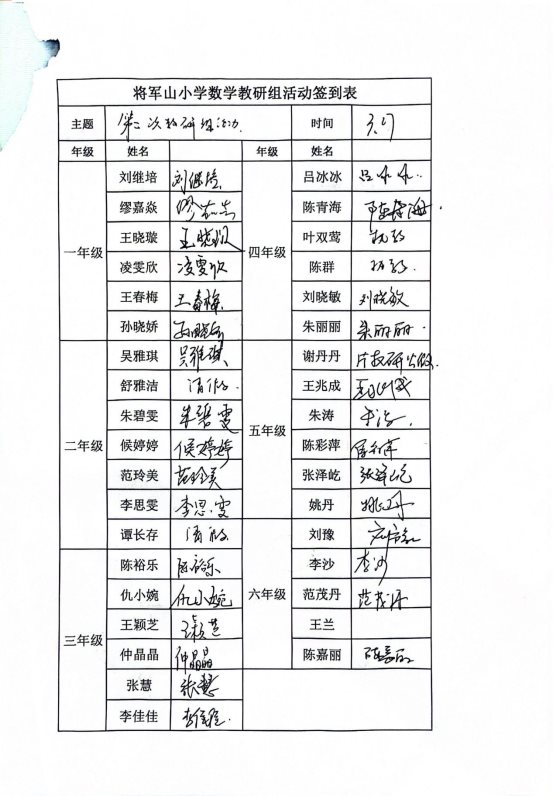 将军山小学数学教研组活动签到表
主题 第二次教研组活动 时间
年级 姓名 年级 姓名
一年级 刘继培 刘继培 四年级 吕冰冰 吕冰冰
缪嘉焱 陈青海 陈青海
王晓璇 王晓璇 叶双莺
凌雯欣 凌雯欣 陈群
王春梅 王春梅 刘晓敏 刘晓敏
孙晓娇 孙晓娇 朱丽丽 朱丽丽
二年级 吴雅琪 吴雅琪 五年级 谢丹丹
舒雅洁 请假 王兆成 王兆成
朱碧雯 朱碧雯 朱涛
候婷婷 候婷婷 陈彩萍
范玲美 范玲美 张泽屹 张泽屹
李思雯 李思雯 姚丹 姚丹
谭长存 请假 六年级 刘豫 刘豫
三年级 陈裕乐 陈裕乐 李沙 李沙
仇小婉 仇小婉 范茂丹 范茂丹
王颖芝 王颖芝 王兰
仲晶晶 仲晶晶 陈嘉丽 陈嘉丽
张慧 张慧
李佳佳 李佳佳